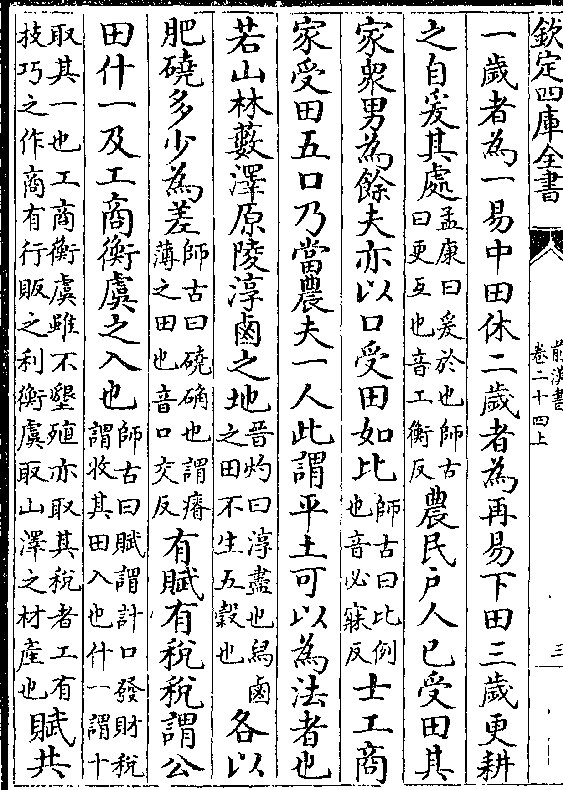 欽定四庫全書
前漢書
卷二十四上
三
一歲者為一易中田休二歲者為再易下田三歲更耕
之自爰其處孟康曰爰於也師古
曰更互也音工衡反農民戶人已受田其
家衆男為餘夫亦以口受田如比師古曰比例
也音必寐反士工商
家受田五口乃當農夫一人此謂平土可以為法者也
若山林藪澤原陵淳鹵之地晉灼曰淳盡也舄鹵
之田不生五穀也各以
肥磽多少為差師古曰磽确也謂瘠
薄之田也音口交反有賦有稅稅謂公
田什一及工商衡虞之入也師古曰賦謂計口發財稅
謂收其田入也什一謂十
取其一也工商衡虞雖不墾殖亦取其稅者工有
技巧之作商有行販之利衡虞取山澤之材產也賦共